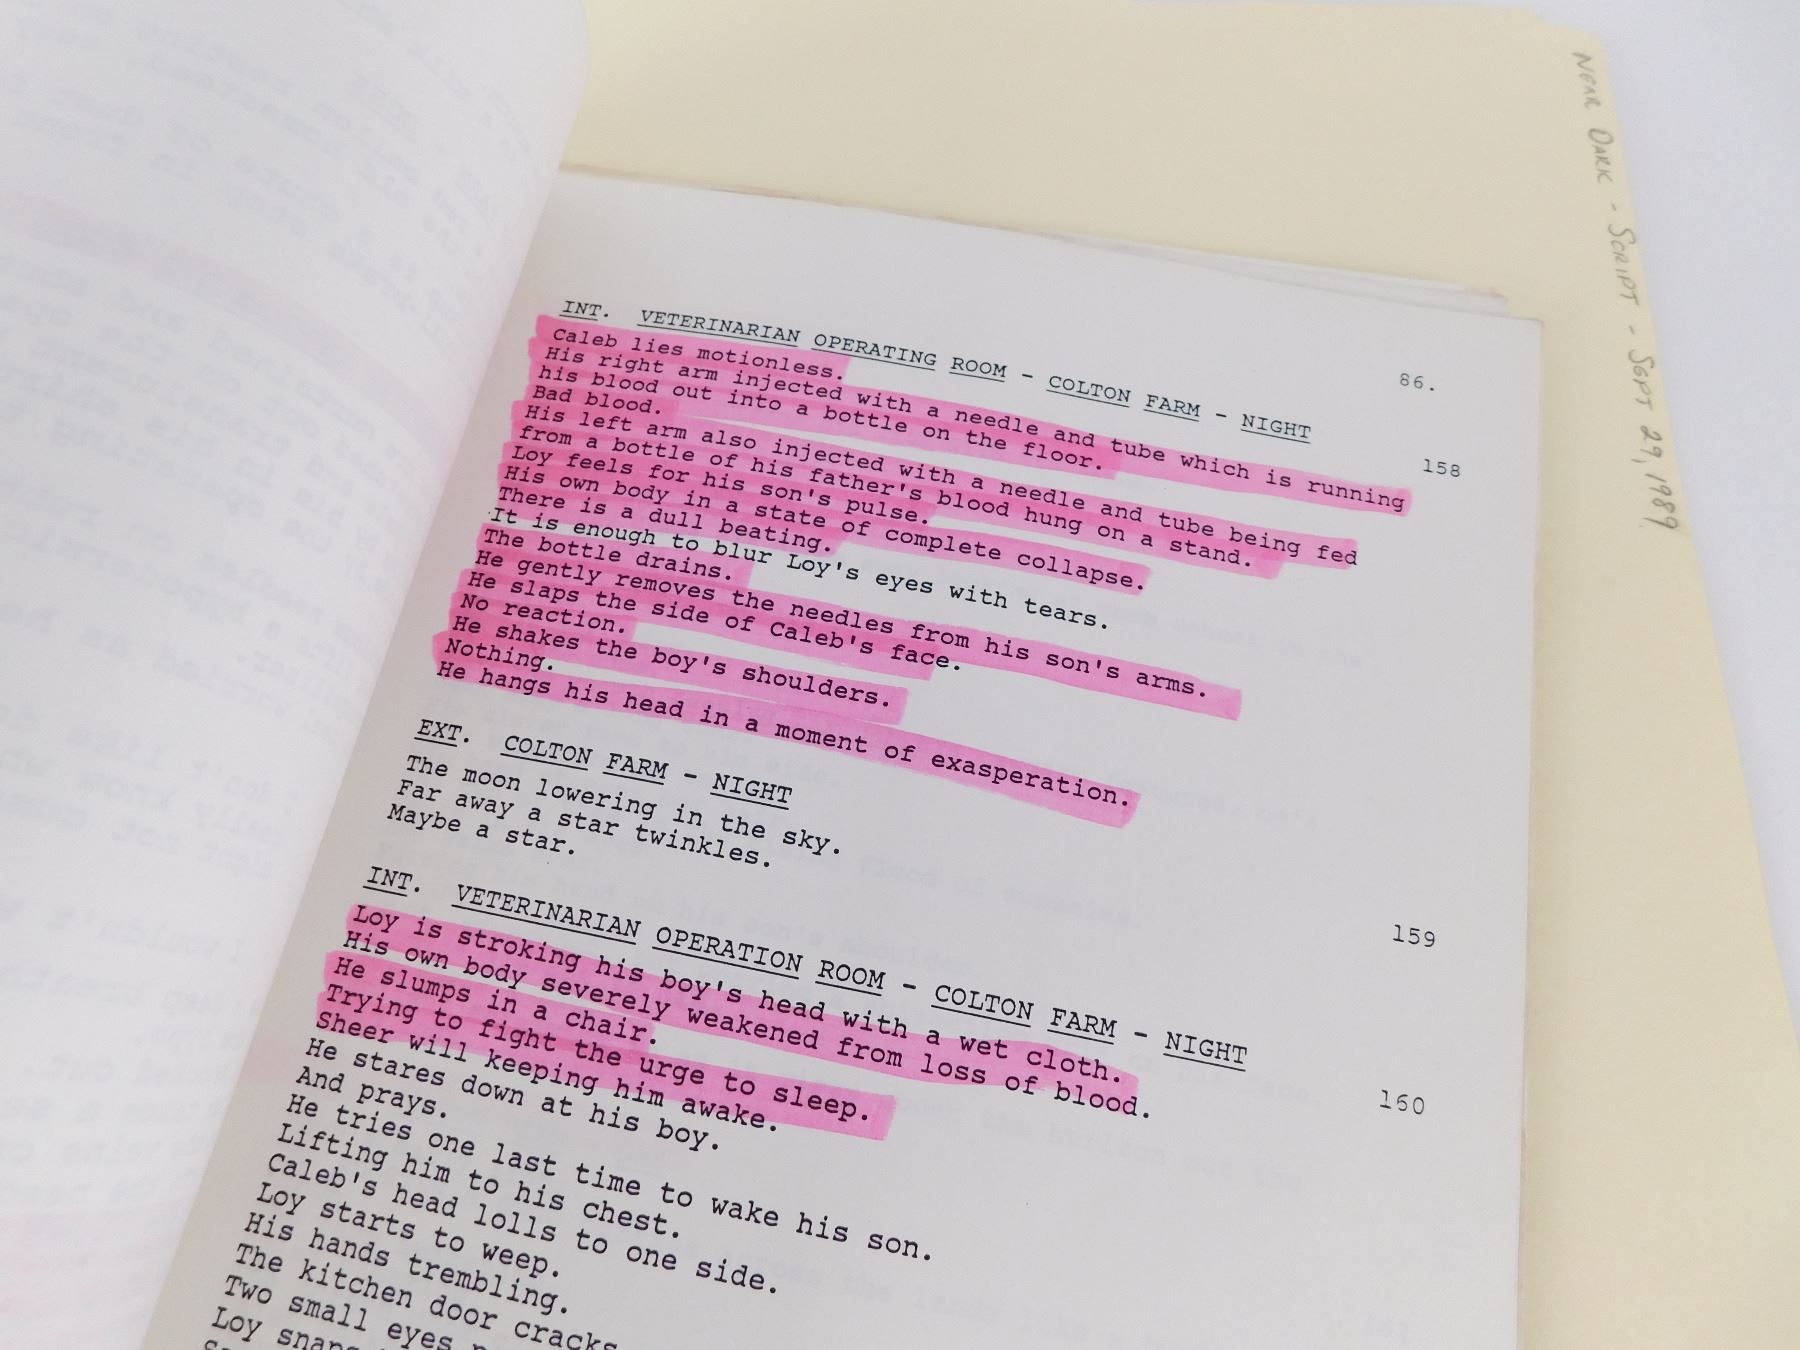 NEAR DARK - SCRIPT - SEPT 29, 1989
86.
INT. VETERINARIAN OPERATING ROOM - COLTON FARM - NIGHT
158
Caleb lies motionless.
His right arm injected with a needle and tube which is running
his blood out into a bottle on the floor.
Bad blood.
His left arm also injected with a needle and tube being fed
from a bottle of his father's blood hung on a stand.
Loy feels for his son's pulse.
His own body in a state of complete collapse.
There is a dull beating.
It is enough to blur Loy's eyes with tears.
The bottle drains.
He gently removes the needles from his son's arms.
He slaps the side of Caleb's face.
No reaction.
He shakes the boy's shoulders.
Nothing.
He hangs his head in a moment of exasperation.
EXT. COLTON FARM - NIGHT
159
The moon lowering in the sky.
Far away a star twinkles.
Maybe a star.
INT. VETERINARIAN OPERATION ROOM - COLTON FARM - NIGHT
160
Loy is stroking his boy's head with a wet cloth.
His own body severely weakened from loss of blood.
He slumps in a chair.
Trying to fight the urge to sleep.
Sheer will keeping him awake.
He stares down at his boy.
And prays.
He tries one last time to wake his son.
Lifting him to his chest.
Caleb's head lolls to one side.
Loy starts to weep.
His hands trembling.
The kitchen door cracks
Two small eyes
Loy